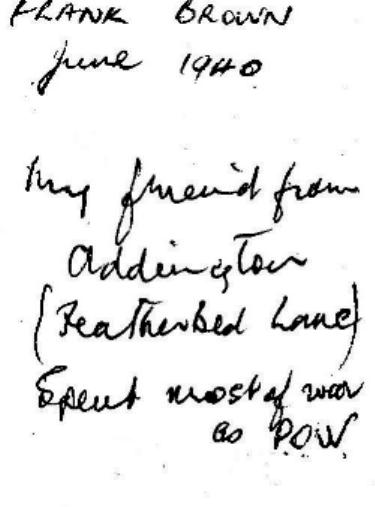 FRANK BROWN
June 1940
My friend from
Addington
(Featherbed Lane)
Spent most of war
as POW